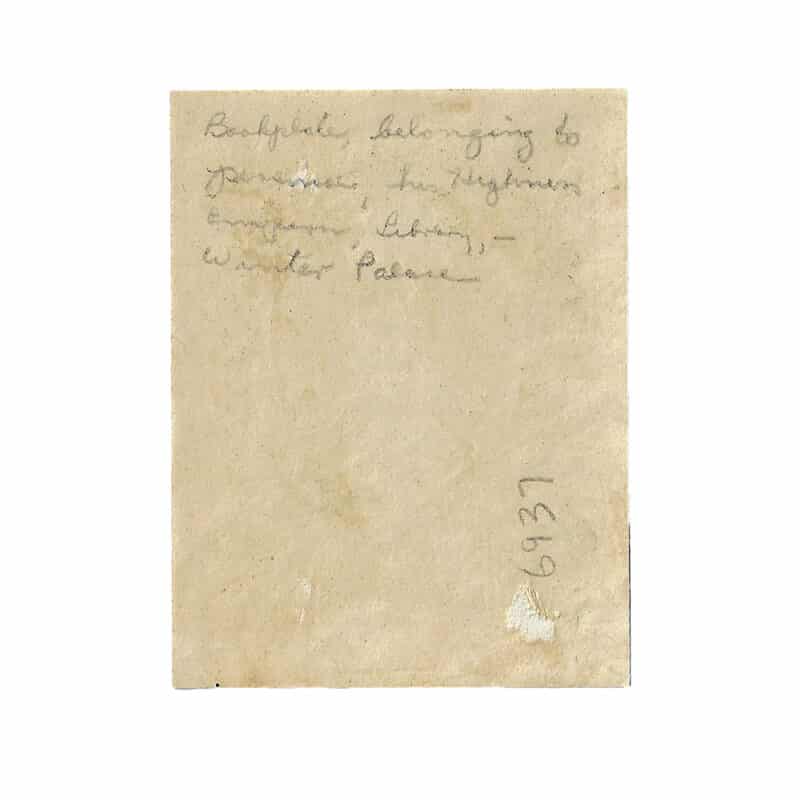 Bookplate, belonging to
personal, his Highness
Emperors, Library, –
Winter Palace
6937